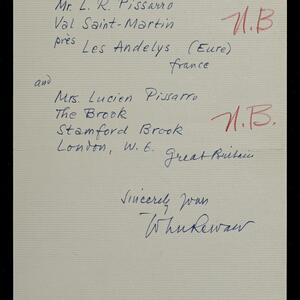 Mr. L. R. Pissarro
Val Saint-Martin
N.B
près Les Andelys (Eure)
france
and
Mrs. Lucien Pissarro
The Brook
N.B.
Stamford Brook
London, W. 6. Great Britain
Sincerely yours